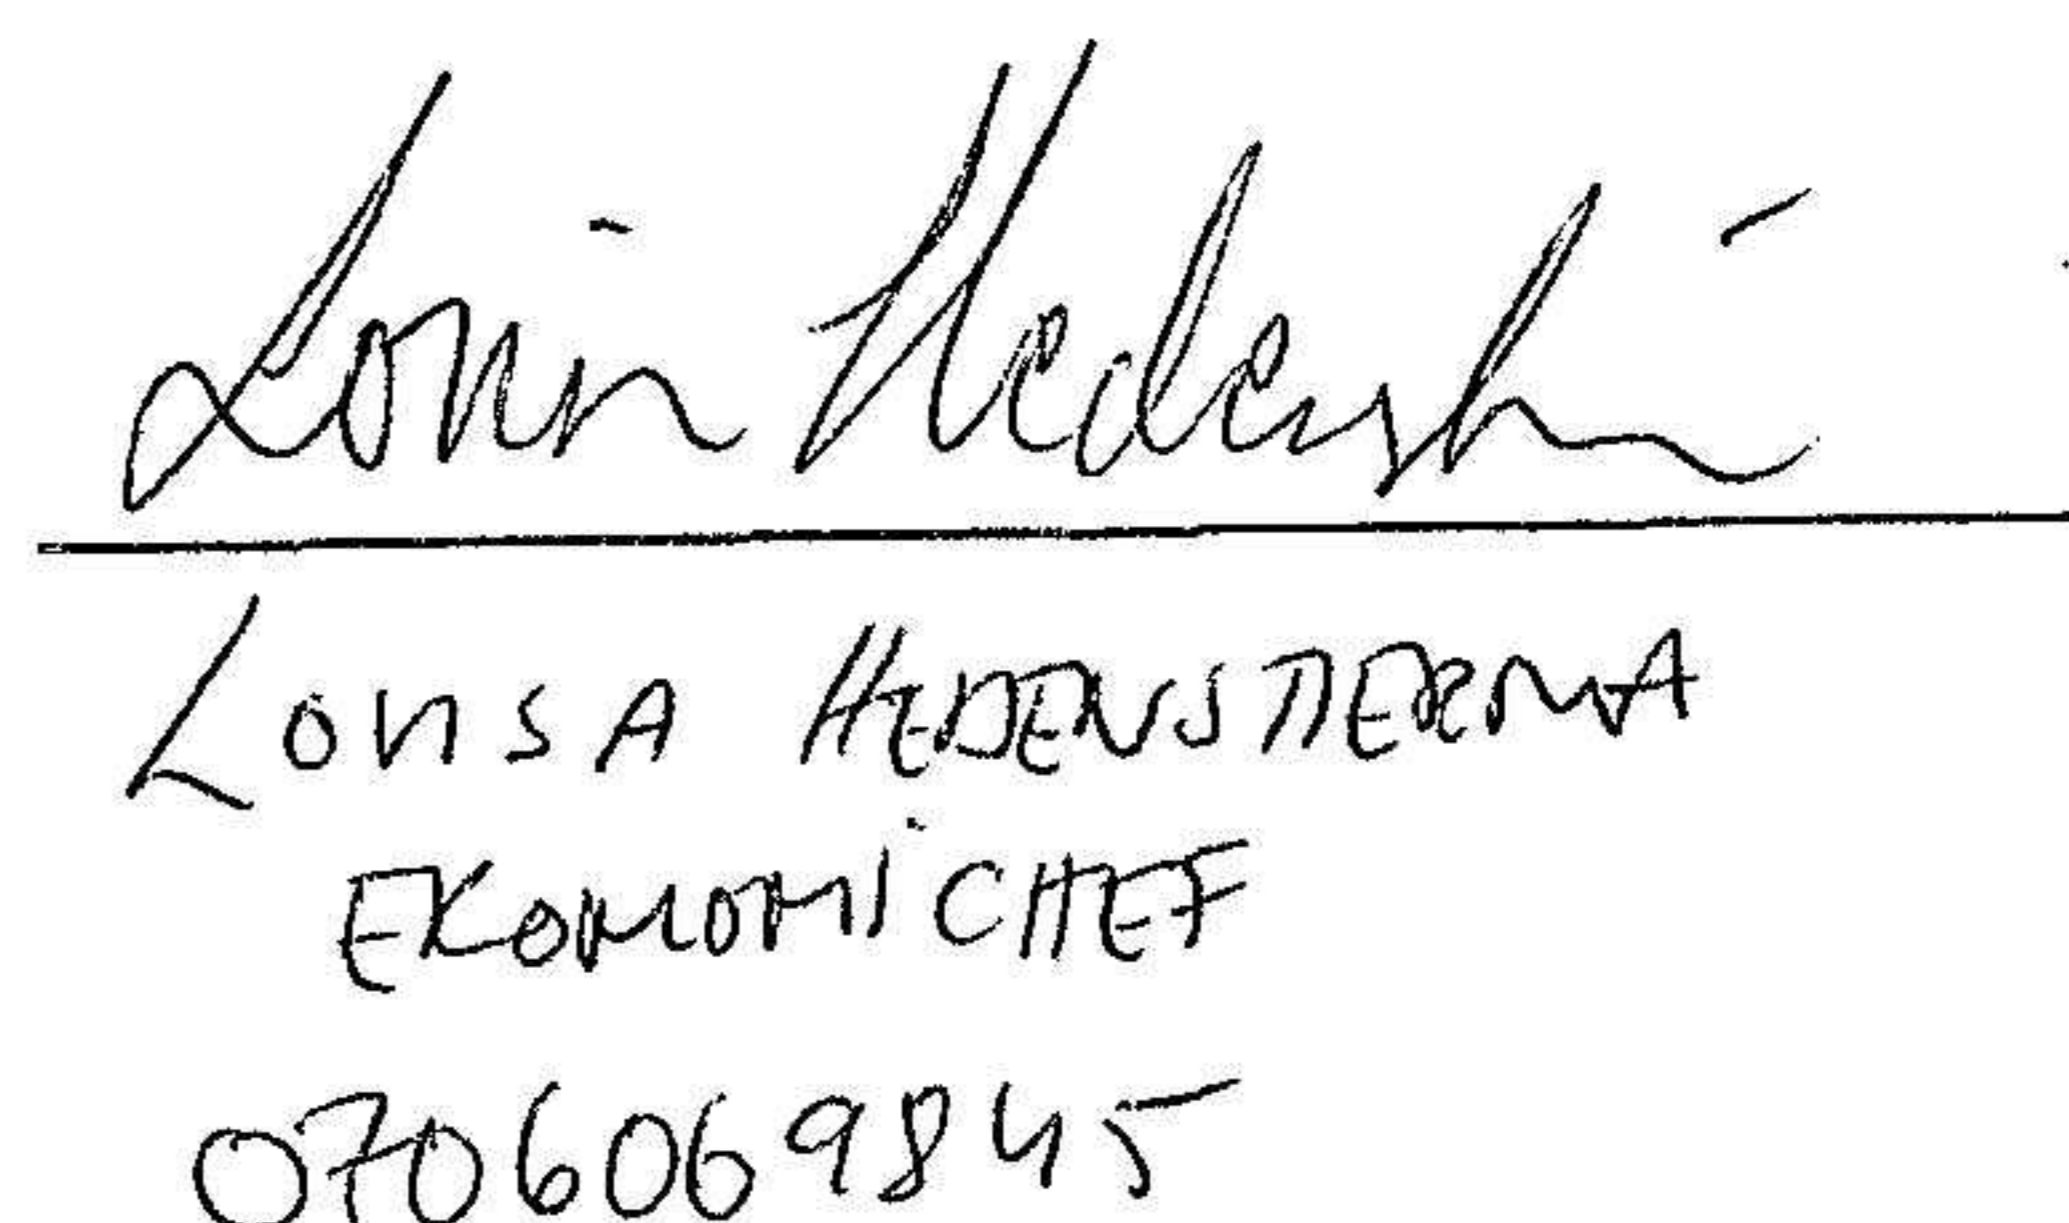 Lovisa Hedenstierna
LOVISA HEDENSTIERNA
EKONOMICHEF
0706069845